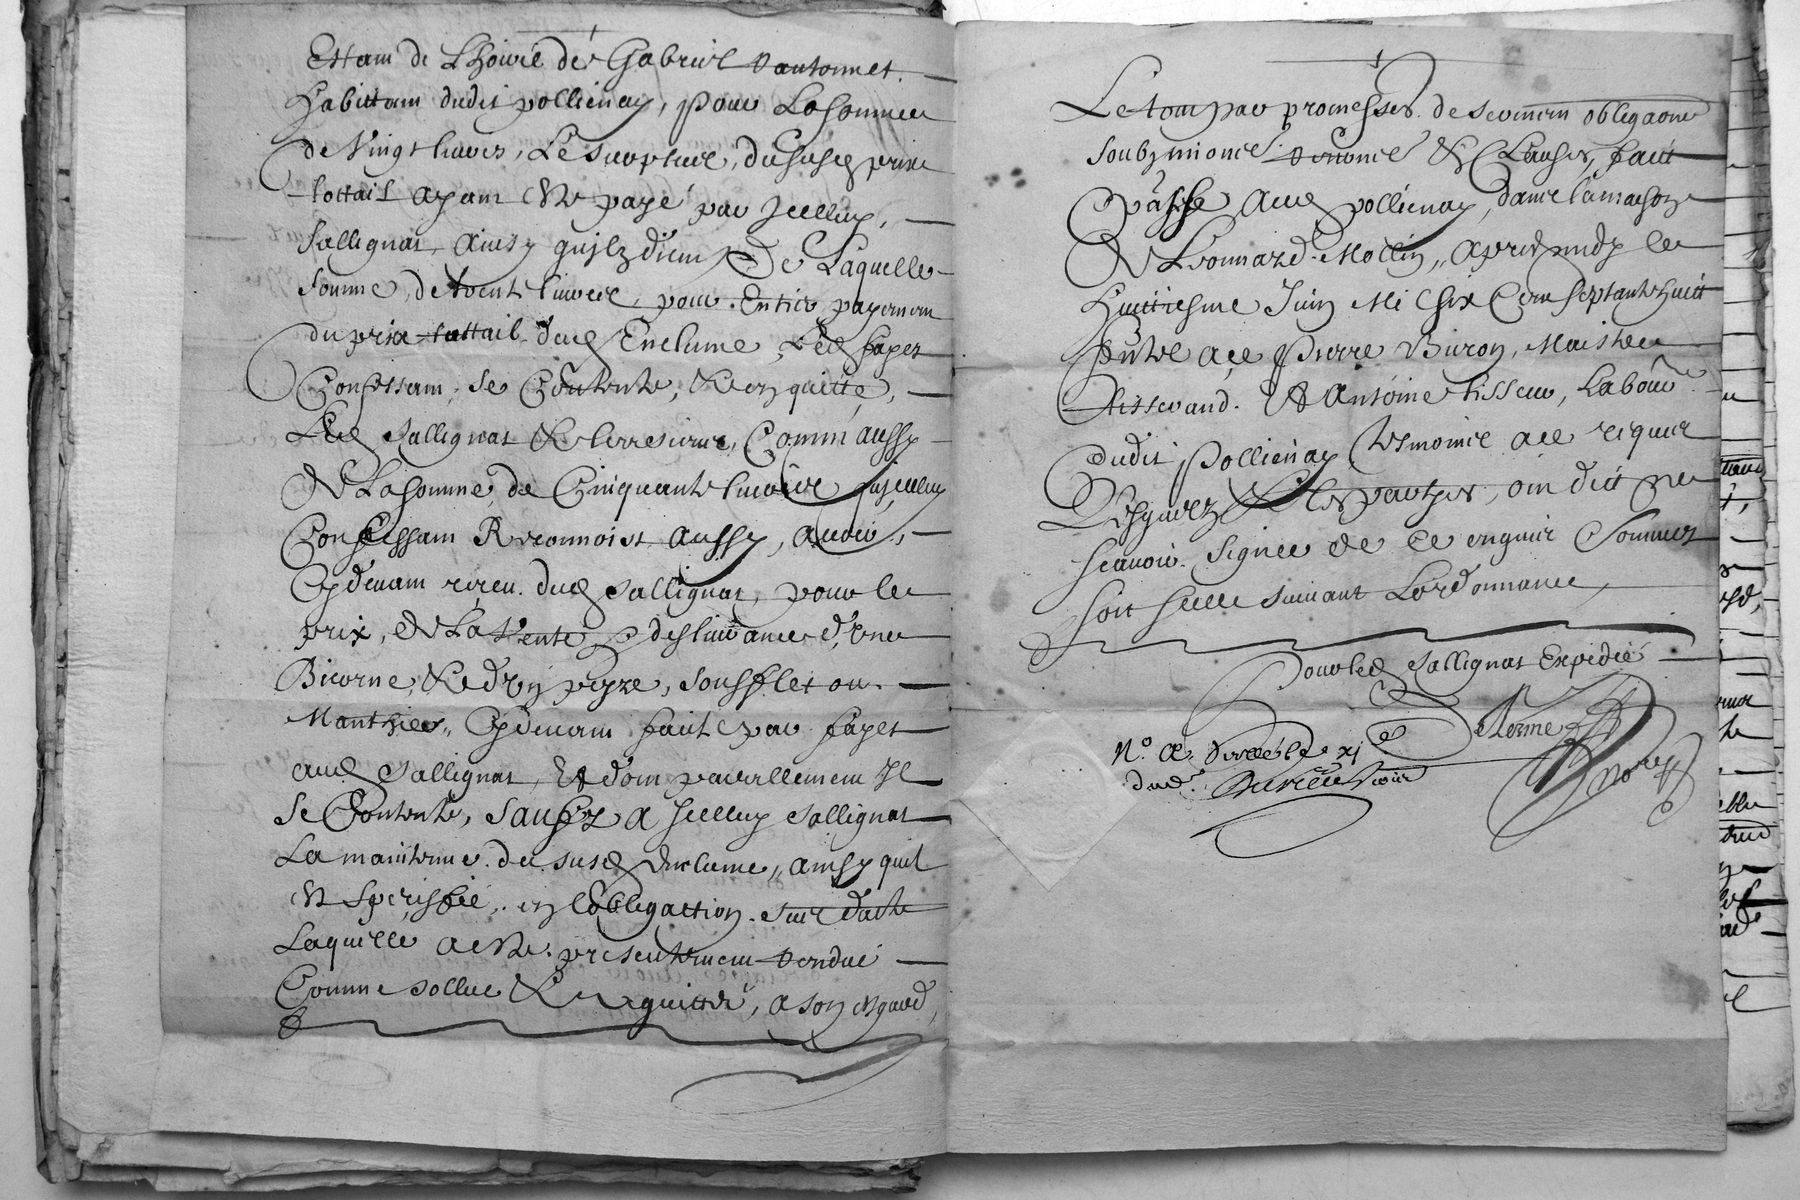 Estam de Lhoirie de Gabriel Dantonnet
habittam dudit pollienay, pour La somme
de Vingt livres, Le surplus, du susd prix
tottail ayam Este payé par Icelluy,
Sallignat, ainsy quilz diem De Laquelle
somme, de trente livres, pour Entier payemem
du prix tottail dud Enclume, Led fayet
Confessam, se Contente, & en quitte,
Led Sallignat & les siens, Comm aussy
de La somme de Cinquante livres Icelluy
Confessam Recognoist aussy, avoir,
Cydevam receu dud Sallignat, pour le
prix, de La Vente & deslivrance d'une
Bicorne, & d'un soufflet ou
Manthier, Cydevam faite par fayet
aud Sallignat, Et dom pareillemem Il
se Contente, sauf a Icelluy Sallignat
La maintenue du susd Enclume, ainsy quil
Est Speciffié, en Lobligattion sur datte
Laquelle a este presentemem Rendue
Comme sollue & acquittée, a son esgard,
Le tout par promesses de sermem obligaons
soubzmions renons & Clauses, faict
& passé aud pollienay, dans la maison
de Leonnard Mollin, apres midy le
huittiesme Juin Mil six Cens septante huict
presens a ce Pierre Biron, Maistre
tisserand Et Antoine tisseur, Labour
dudit Pollienay tesmoins a ce requis
Lesquelz & les parties, ont dict ne
scavoir signer de ce enquis Sommes
soit scelle suivant Lordonnance,
Pour led Sallignat Expedié